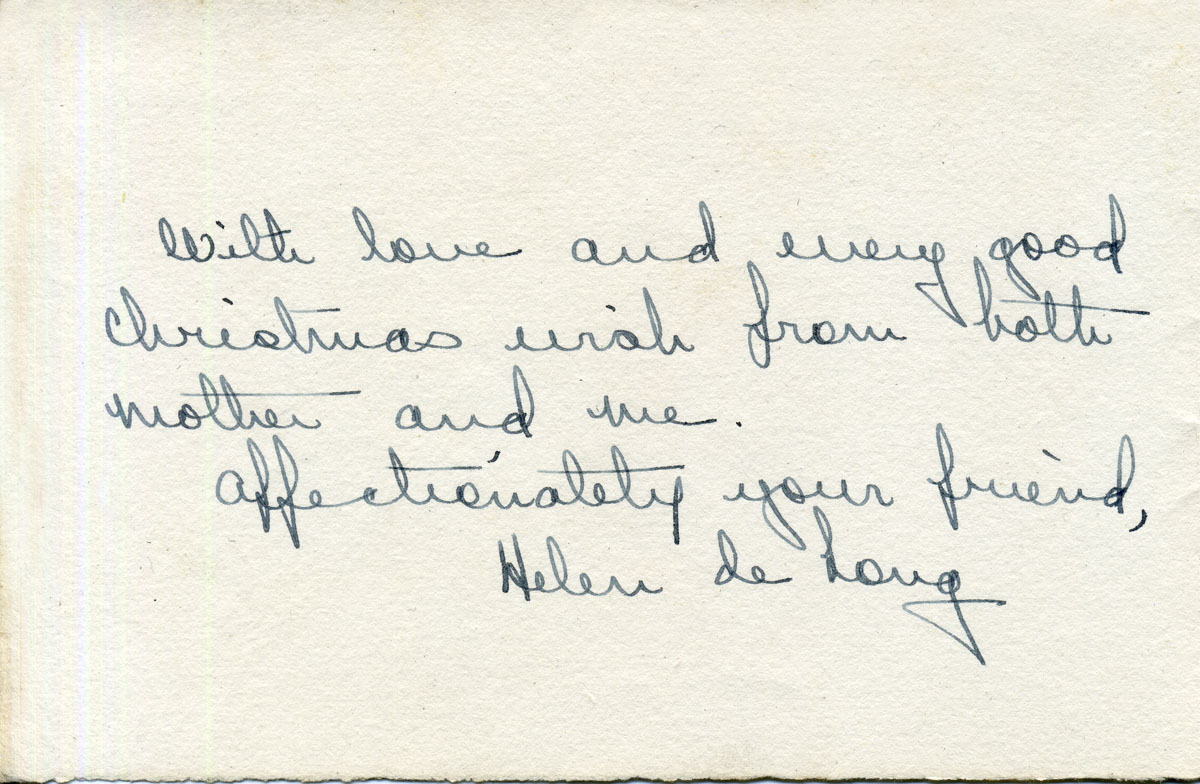 With love and every good
Christmas wish from both
mother and me.
Affectionately your friend,
Helen de Long